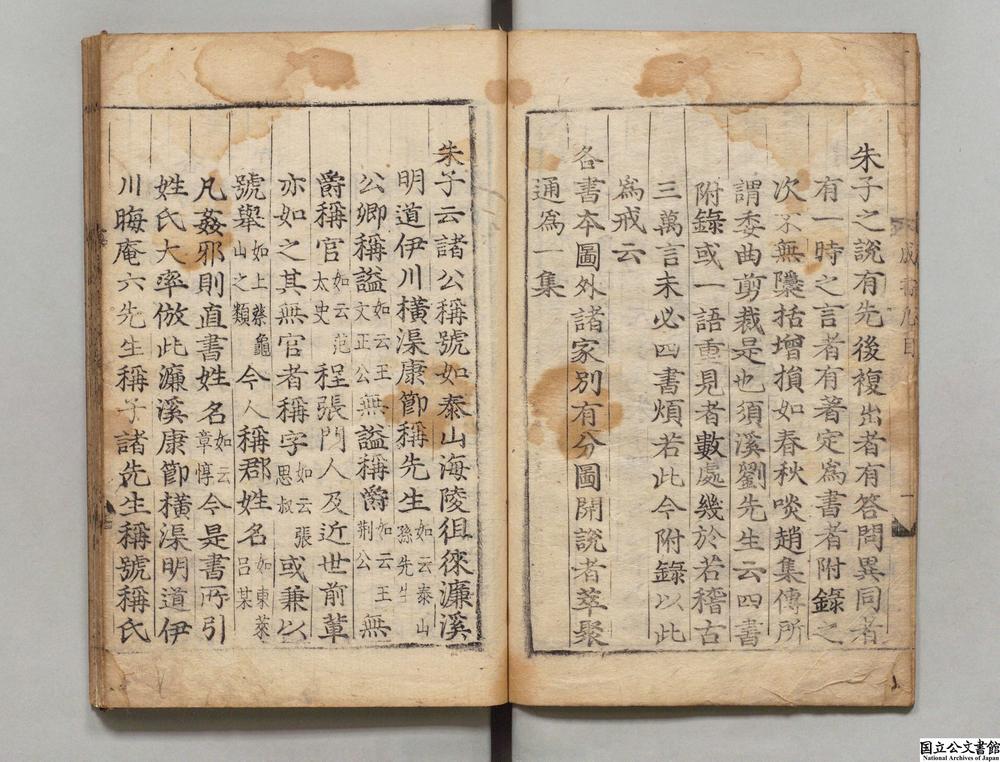 朱子之說有先後複出者有答問異同者
有一時之言者有著定爲書者附錄之
次不無檃括增損如春秋啖趙集傳所
謂委曲剪裁是也須溪劉先生云四書
附錄或一語重見者數處幾於若稽古
三萬言未必四書煩若此今附錄以此
爲戒云
各書本圖外諸家別有分圖開說者萃聚
通爲一集
朱子云諸公稱號如泰山海陵徂徠濂溪
明道伊川橫渠康節稱先生如云泰山孫先生
公卿稱謚如云王文正公無謚稱爵如云王荊公無
爵稱官如云范太史程張門人及近世前輩
亦如之其無官者稱字如云張思叔或兼以
號舉如上蔡龜山之類今人稱郡姓名如東萊呂某
凡姦邪則直書姓名如云章惇今是書所引
姓氏大率倣此濂溪康節橫渠明道伊
川晦庵六先生稱子諸先生稱號稱氏
国立公文書館
National Archives of Japan